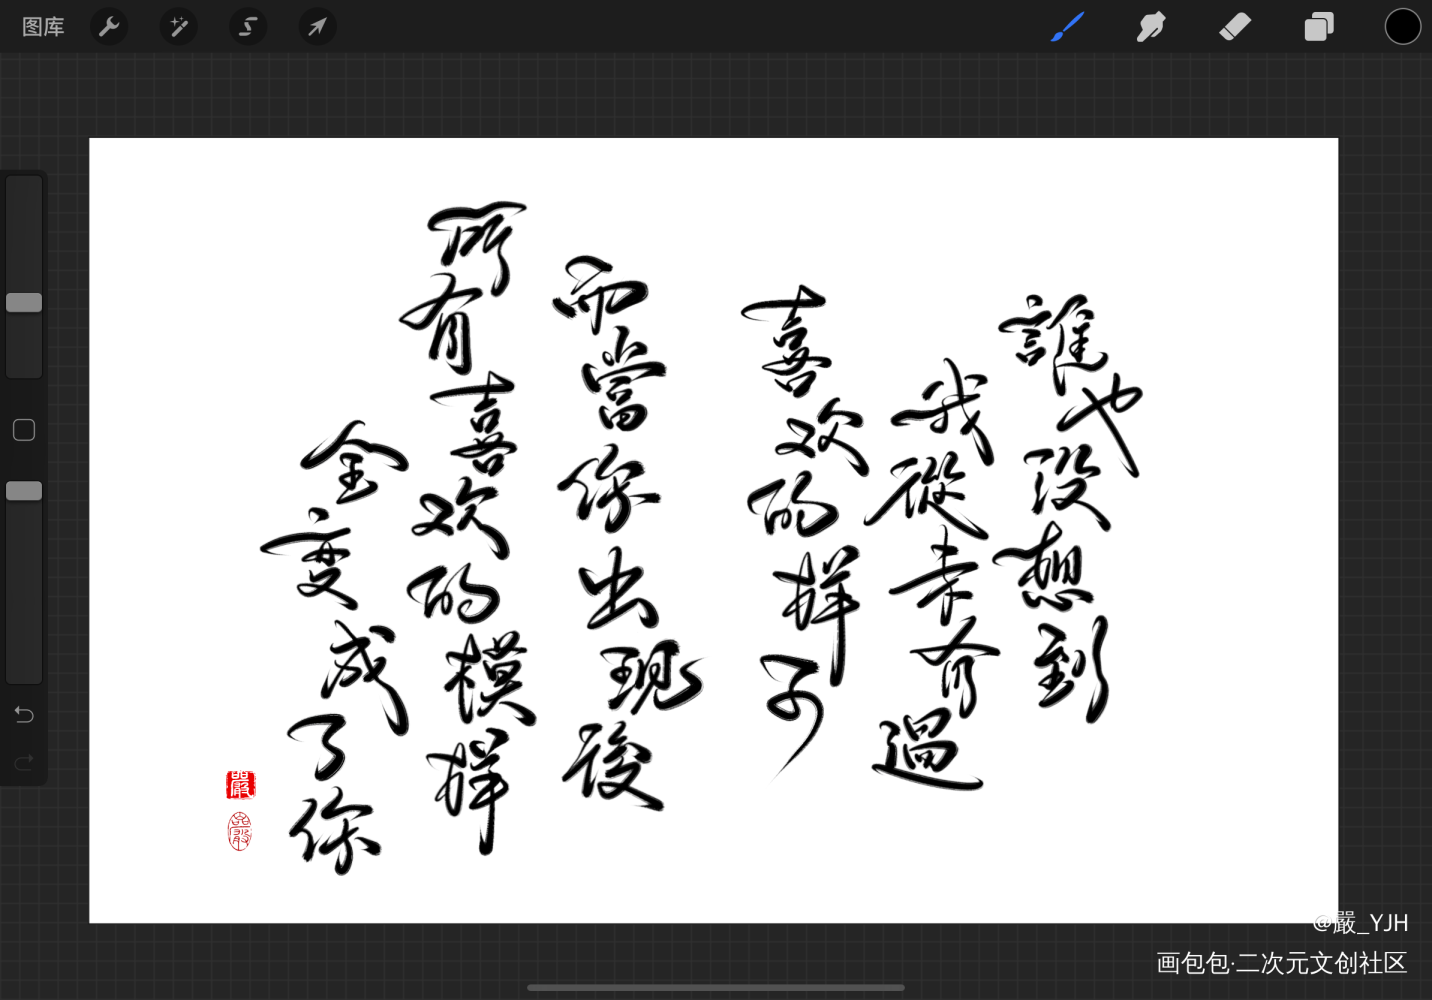 图库
誰也没想到
我從未有過
喜欢的样子
而當你出现後
所有喜欢的模样
全变成了你
嚴
嚴
@嚴_YJH
画包包·二次元文创社区